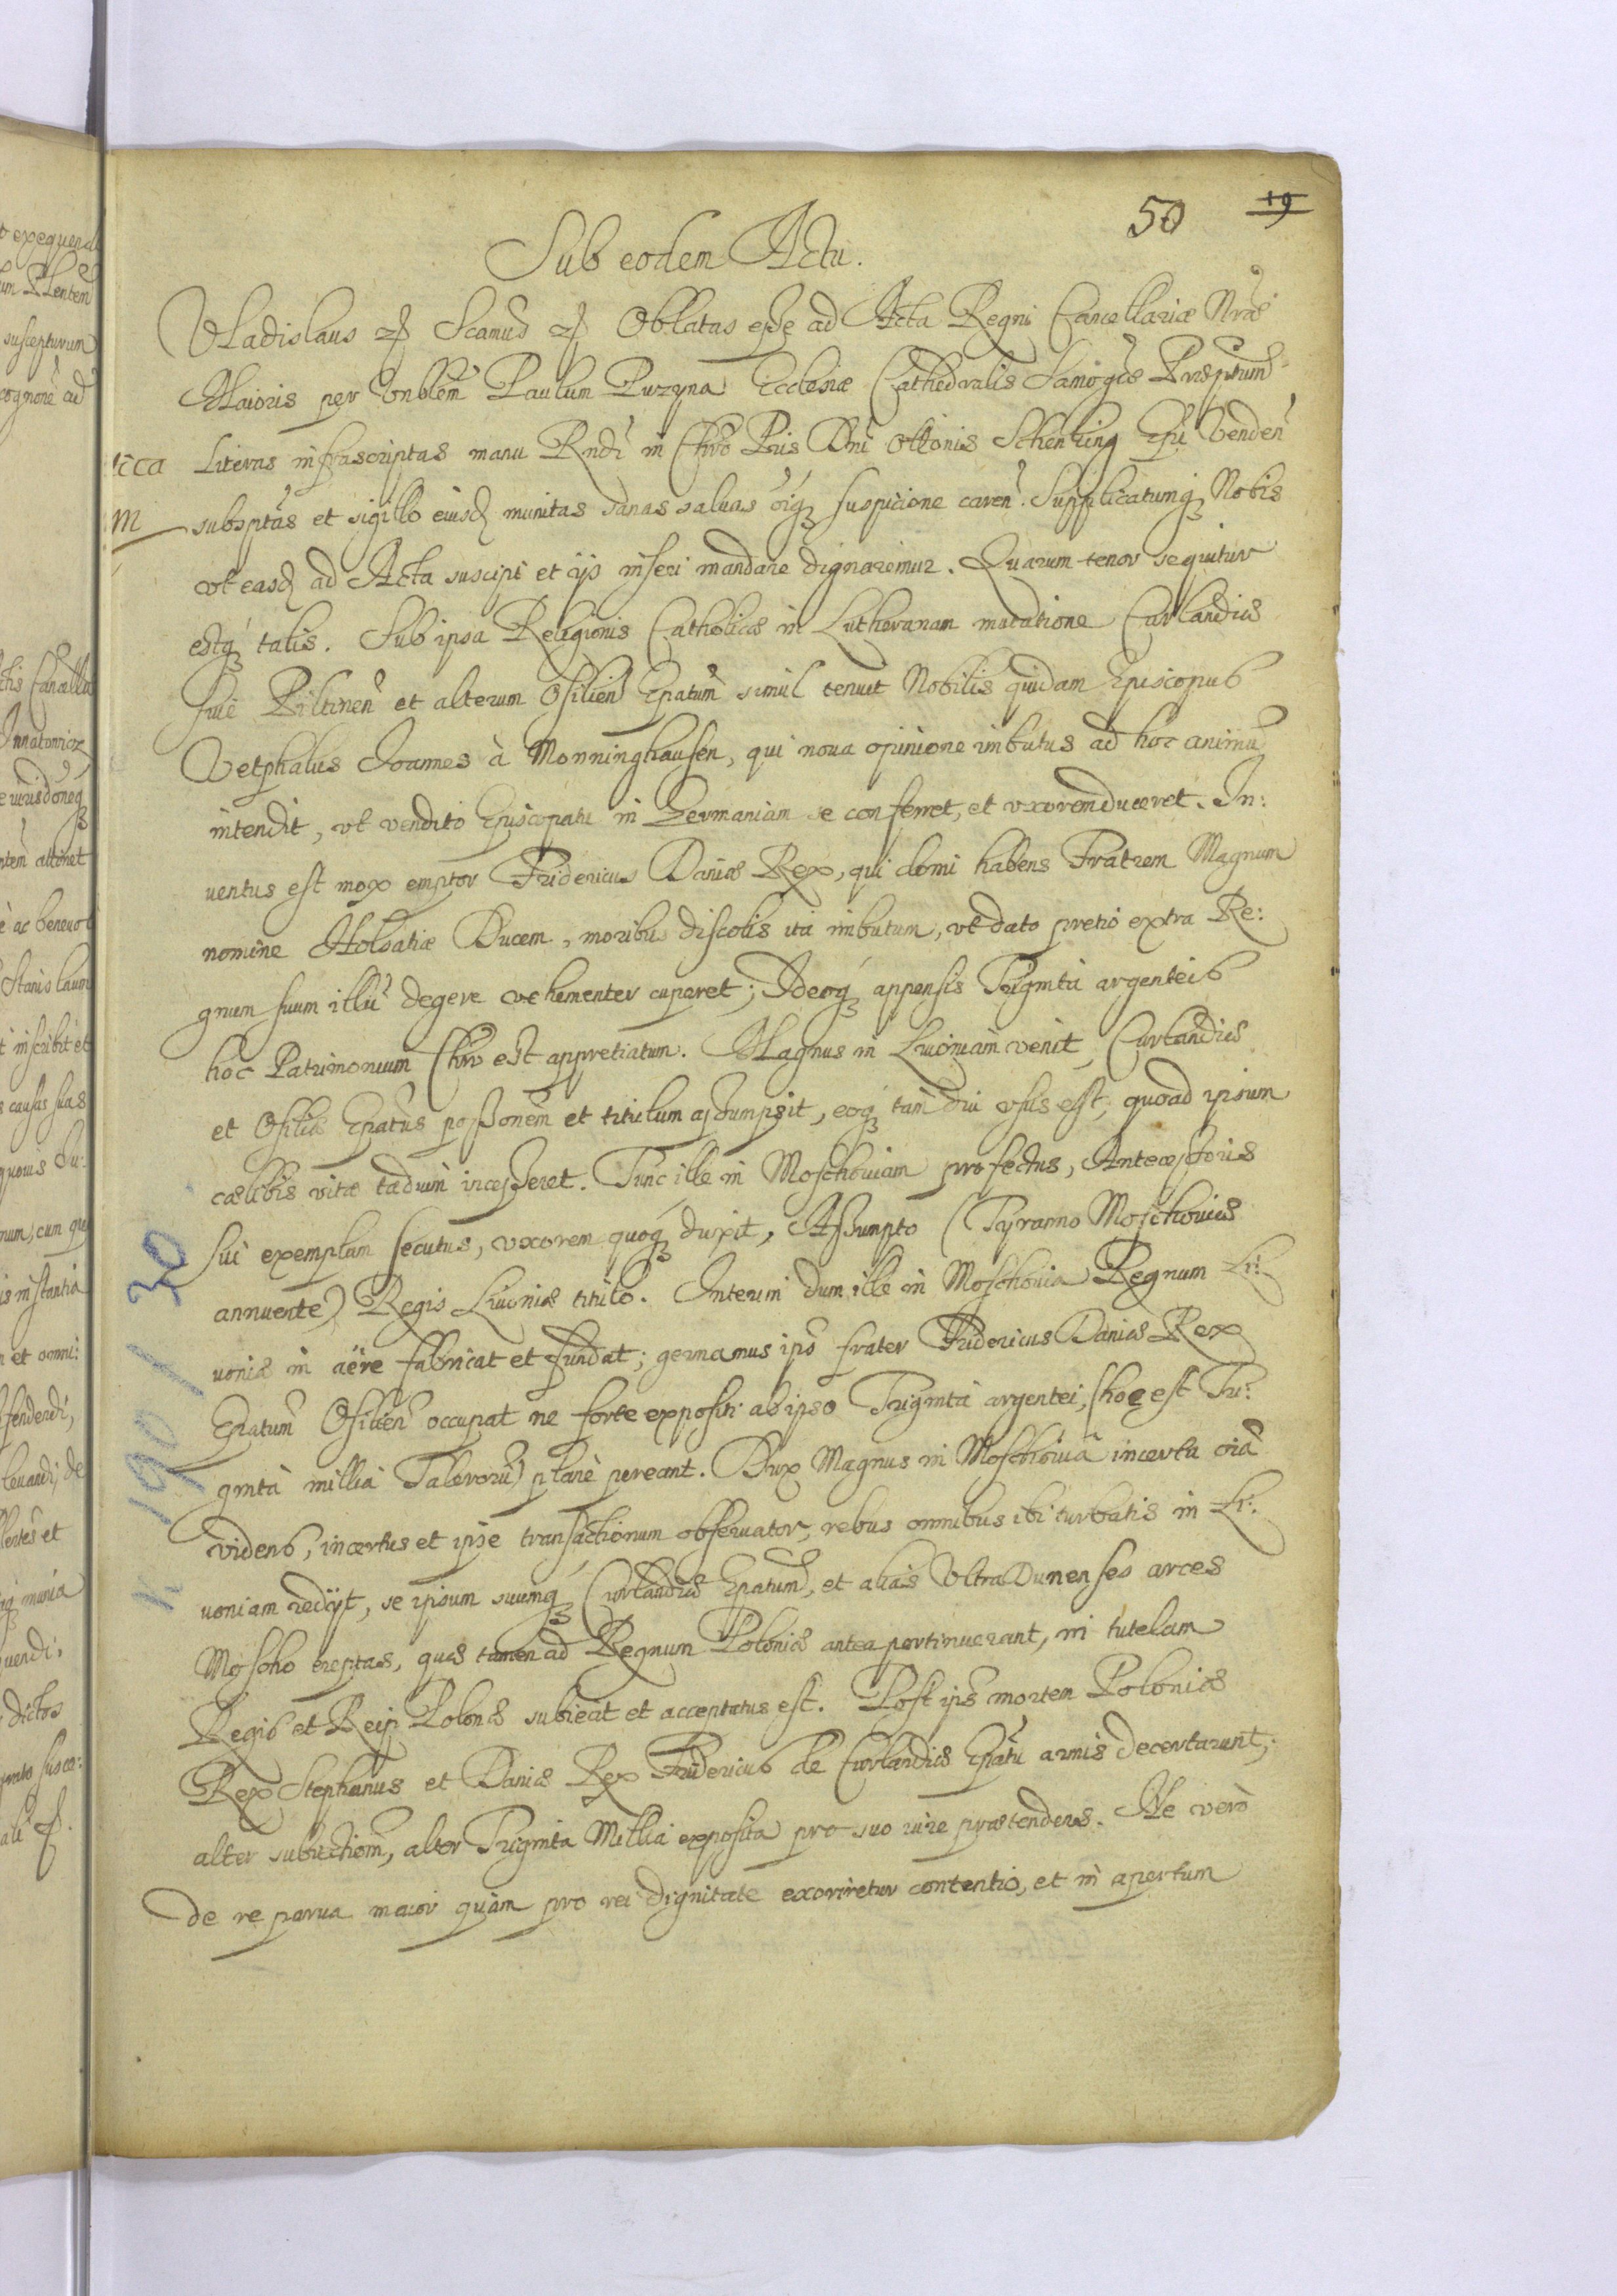 50 19
Sub eodem Actu.
Vladislaus etc Scamus etc Oblatas esse ad Acta Regni Cancellariæ Nræ
Maioris per Vnblem Paulum Puzyna Ecclesiæ Cathedralis Samogiæ Præptum
Literas infrascriptas manu Rndi in Chro Pris Dni Ottonis Schenking Epi Venden
subsptas et sigillo eiusd munitas sanas saluas oiq suspicione caren. Supplicatumq Nobis
vt easd ad Acta suscipi et ijs inseri mandare dignaremur. Quarum tenor sequitur
estq talis. Sub ipsa Religionis Catholicæ in Lutheranam mutatione Curlandiæ
siue Piltinen et alterum Osilien Epatum simul tenuit Nobilis quidam Episcopus
Vetphalus Joannes à Monninghausen, qui noua opinione imbutus ad hoc animu
intendit, vt vendito Episcopatu in Germaniam se conferret, et vxorem duceret. In:
uentus est mox emptor Fridericus Daniæ Rex, qui domi habens Fratrem Magnum
nomine Holsatiæ Ducem, moribus discolis ita imbutum, vt dato pretio extra Re:
gnum suum illu degere vehementer cuperet; Ideoq appensis Triginta argenteis
hoc Patrimonium Chri est appretiatum. Magnus in Liuoniam venit, Curlandiæ
et Osiliæ Epatus possonem et titulum assumpsit, eoq tam diu vsus est, quoad ipsum
cælibis vitæ tædium incesseret. Tunc ille in Moschouiam profectus, Antecessoris
sui exemplum secutus, vxorem quoq duxit, Assumpto (Tyranno Moschouiæ
annuente) Regis Liuoniæ titulo. Interim dum ille in Moschouia Regnum Li:
uoniæ in aëre fabricat et fundat; germanus ips frater Fridericus Daniæ Rex
Epatum Osilien occupat ne forte expositi ab ipso Triginta argentei, (hoc est Tri:
ginta millia Taleroru) planè pereant. Dux Magnus in Moschouia incerta oia
videns, incertus et ipse transactionum obseruator, rebus omnibus ibi turbatis in Li:
uoniam redijt, se ipsum suumq Curlandiæ Epatum, et alias Vltra Dunenses arces
Moscho ereptas, quæ tamen ad Regnum Poloniæ antea pertinuerant, in tutelam
Regis et Reip Polonæ subiecit et acceptatus est. Post ips mortem Poloniæ
Rex Stephanus et Daniæ Rex Fridericus de Curlandiæ Epatu armis decertarunt;
alter subiectiom, alter Triginta Millia exposita pro suo iure prætendens. Ne verò
de re parua maior quàm pro rei dignitate exoriretur contentio, et in apertum